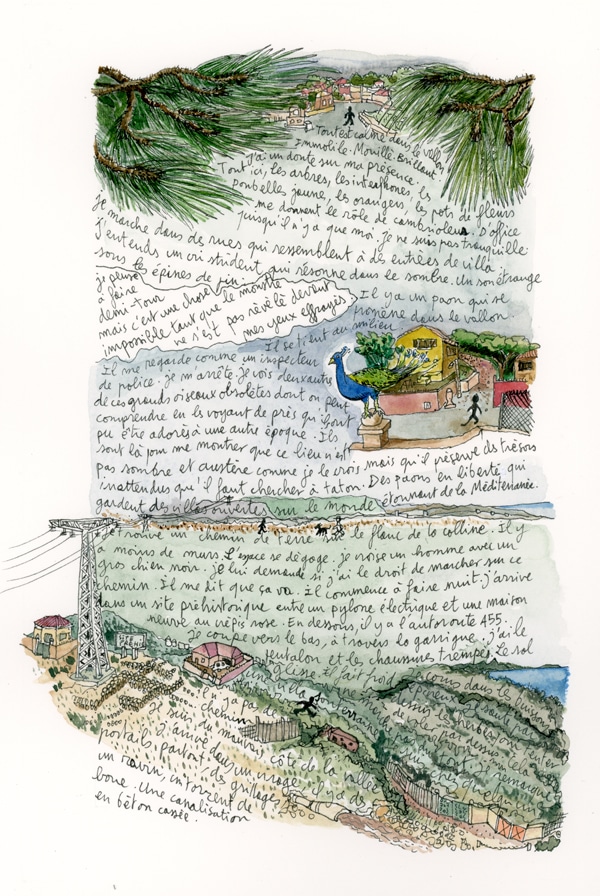 Tout est calme dans le vallon,
Immobile. Mouillé. Brillant.
J'ai un doute sur ma présence.
Tout ici, les arbres, les interphones, les
poubelles jaune, les orangers, les pots de fleurs
me donnent le rôle de cambrioleur d'office
puisqu'il n'y a que moi. Je ne suis pas tranquille.
Je marche dans des rues qui ressemblent à des entrées de villa.
J'entends un cri strident qui résonne dans le sombre. Un son étrange
sous les épines de pin.
Je pense
à faire
demi-tour
mais c'est une chose
impossible tant que le monstre
ne s'est pas révélé devant
mes yeux effrayés
Il y a un paon qui se
promène dans le vallon
Il se tient au milieu
Il me regarde comme un inspecteur
de police. Je m'arrête. Je vois deux autre
de ces grands oiseaux obsolètes dont on peut
comprendre en les voyant de près qu'ils ont
pu être adorés à une autre époque. Ils
sont là pour me montrer que ce lieu n'est
pas sombre et austère comme je le crois mais qu'il préserve des trésors
inattendus qu'il faut chercher à taton. Des paons en liberté qui
gardent des villas ouvertes sur le monde étonnant de la Méditerranée.
trouve un chemin de terre le flanc de la colline. Il y
moins de murs. L'espace se dégage. Je croise un homme avec un
gros chien noir. Je lui demande si j'ai le droit de marcher sur ce
chemin. Il me dit que ça va. Il commence à faire nuit. J'arrive
dans un site préhistorique entre un pylone électrique et une maison
neuve au crépis rose. En dessous, il y a l'autoroute A55.
Je coupe vers le bas, à travers la garrigue. J'ai le
pantalon et les chaussures trempés. Le sol
glisse. il fait froid
Il n'y a pas
chemin
Je suis du mauvais côté de la
J'arrive dans un il y a des
portails partout, des grillages,
un ravin, un torrent de
boue. Une canalisation
en béton cassée.